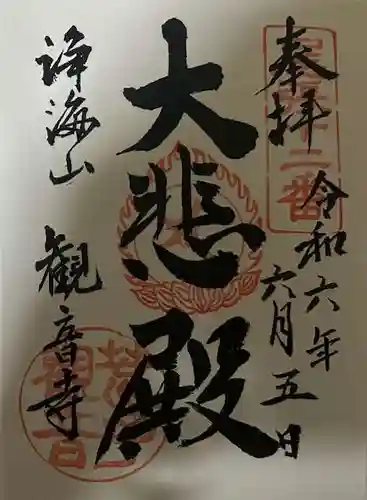 奉拝
令和六年
六月五日
大悲殿
浄海山
観音寺